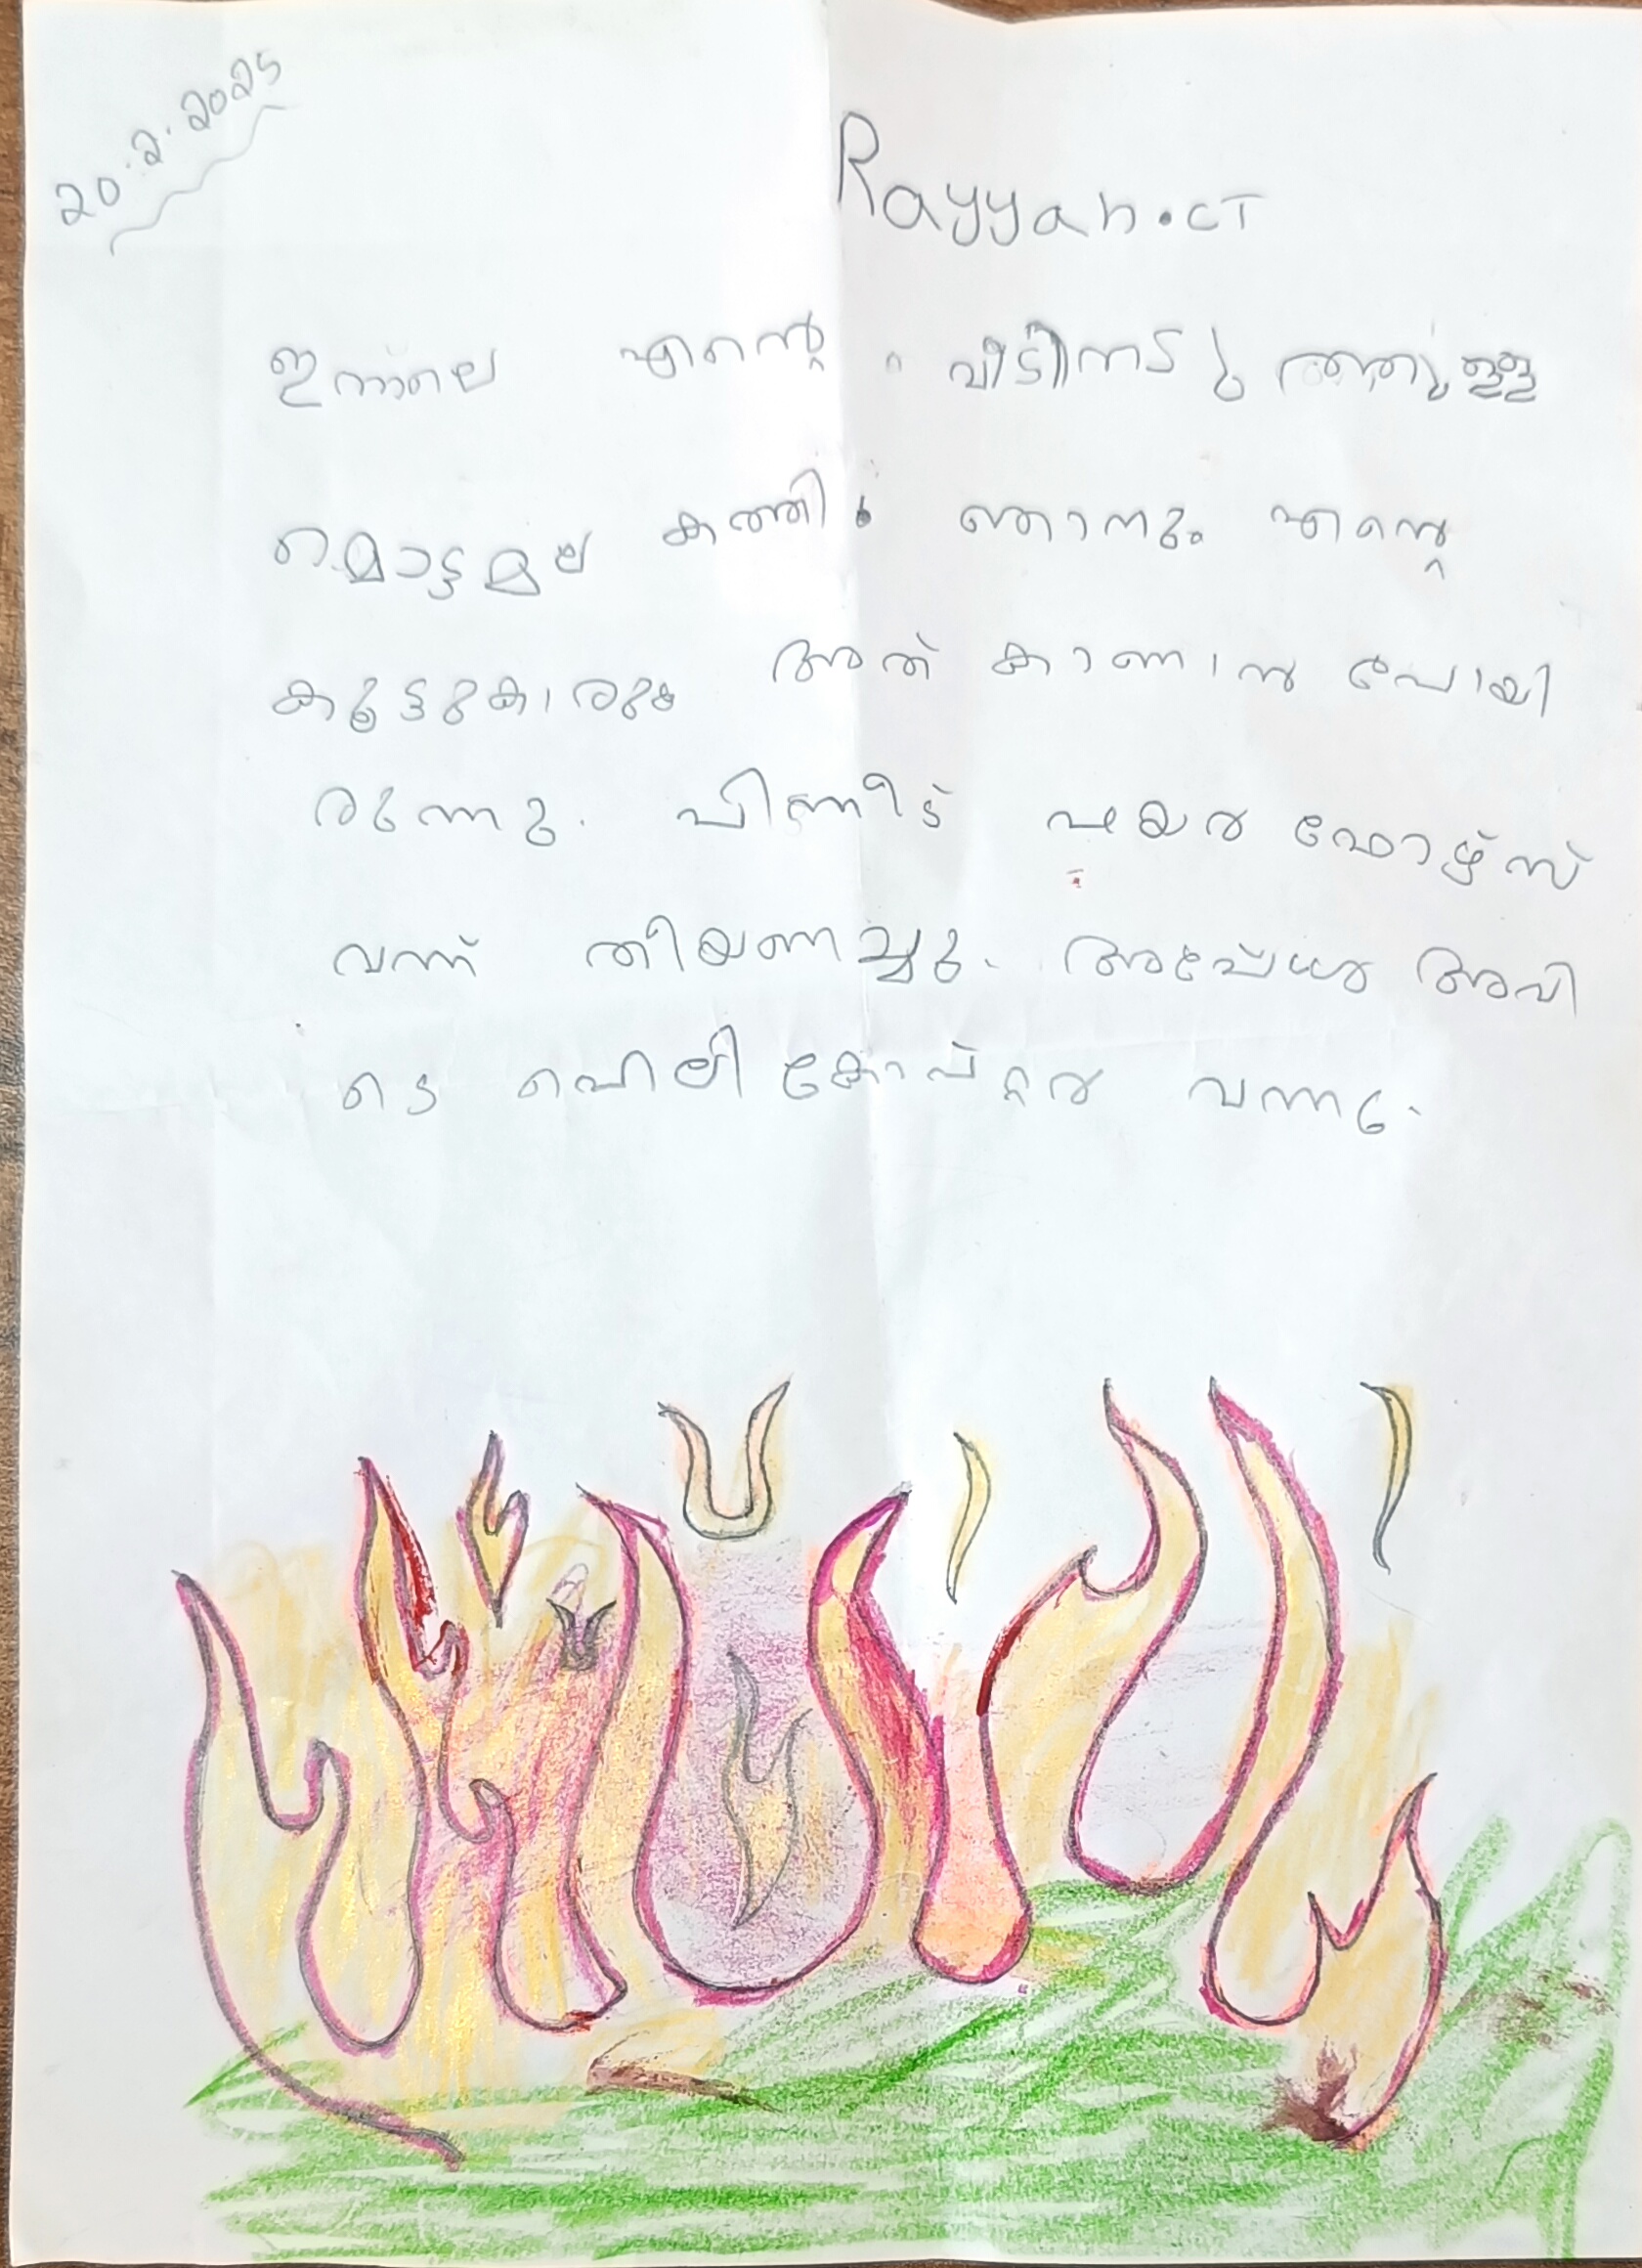 20.2.2025
Rayyan.CT
ഇന്നലെ എന്റെ വീടിനടുത്തുള്ള
മൊട്ടമല കത്തി. ഞാനും എന്റെ
കൂട്ടുകാരും അത് കാണാൻ പോയി
രുന്നു. പിണീട് ഫയർ ഫോഴ്സ്
വന്ന് തീയണച്ചു. അപ്പോൾ അവി
ടെ ഹെലികോപ്റ്റർ വന്നു.